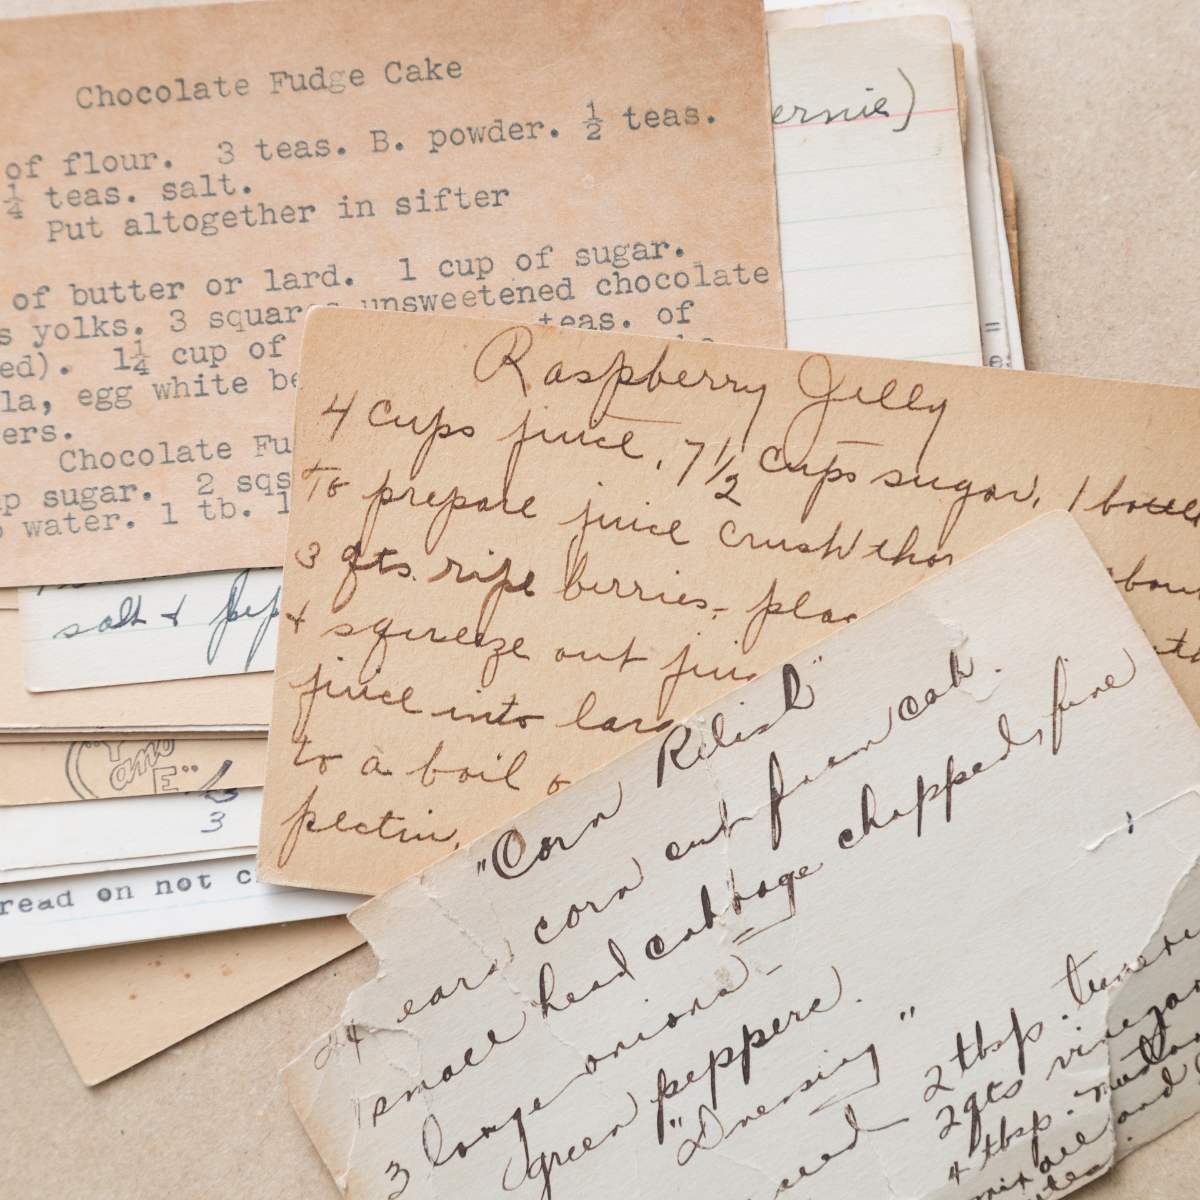 Chocolate Fudge Cake
of flour. 3 teas. B. powder. ½ teas.
¼ teas. salt.
Put altogether in sifter
of butter or lard. 1 cup of sugar.
s yolks. 3 squares unsweetened chocolate
ed). 1¼ cup of teas. of
la, egg white be
ers.
Chocolate Fu
p sugar. 2 sqs
water. 1 tb. 1
ernie)
salt & pep
"Y and E"
3
read on not c
Raspberry Jelly
4 cups juice, 7½ cups sugar, 1 bottle
To prepare juice crush thor
3 qts. ripe berries, plac
& squeeze out juic
juice into larg
to a boil
pectin.
"Corn Relish"
24 ears corn cut from cob.
1 small head cabbage chopped fine
3 large onions
green peppers.
"Dressing"
seed
2 tbsp. tumeric
2 qts vinegar
4 tbsp. mustard
mix all and